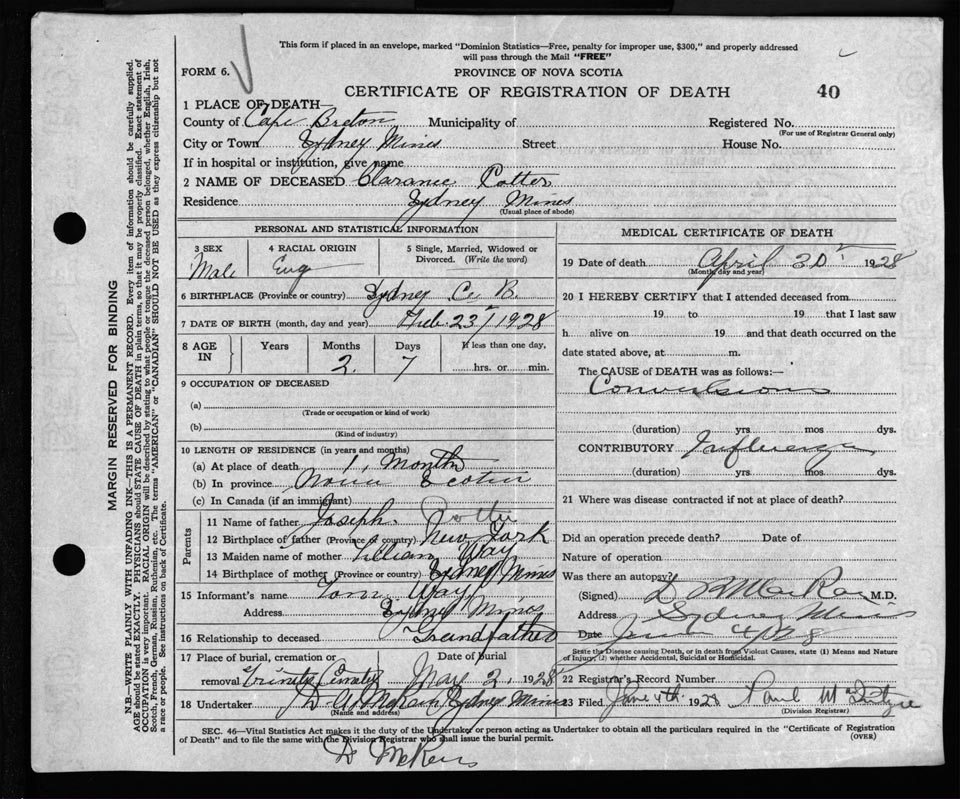 This form if placed in an envelope, marked "Dominion Statistics—Free, penalty for improper use, $300," and properly addressed
will pass through the Mail "FREE"
FORM 6.
PROVINCE OF NOVA SCOTIA
CERTIFICATE OF REGISTRATION OF DEATH
40
1 PLACE OF DEATH
County of Cape Breton Municipality of Registered No.
(For use of Registrar General only)
City or Town Sydney Mines Street House No.
If in hospital or institution, give name
2 NAME OF DECEASED Clarance Potter
Residence Sydney Mines
(Usual place of abode)
PERSONAL AND STATISTICAL INFORMATION
3 SEX 4 RACIAL ORIGIN 5 Single, Married, Widowed or
Divorced. (Write the word)
Male Eng
6 BIRTHPLACE (Province or country) Sydney C. B.
7 DATE OF BIRTH (month, day and year) Feb 23 / 1928
8 AGE IN Years Months Days If less than one day,
2 7 hrs. or min.
9 OCCUPATION OF DECEASED
(a)
(Trade or occupation or kind of work)
(b)
(Kind of industry)
10 LENGTH OF RESIDENCE (in years and months)
(a) At place of death 1, Month
(b) In province Nova Scotia
(c) In Canada (if an immigrant)
Parents
11 Name of father Joseph Potter
12 Birthplace of father (Province or country) New York
13 Maiden name of mother Lillian Way
14 Birthplace of mother (Province or country) Sydney Mines
15 Informant's name Tom Way
Address Sydney Mines
16 Relationship to deceased Grandfather
17 Place of burial, cremation or removal Date of burial
Trinity Cemetery May 2, 1928
18 Undertaker Sydney Mines
(Name and address)
MEDICAL CERTIFICATE OF DEATH
19 Date of death April 30 1928
(Month, day and year)
20 I HEREBY CERTIFY that I attended deceased from
19 to 19 that I last saw
h alive on 19 and that death occurred on the
date stated above, at m.
The CAUSE of DEATH was as follows:—
Convulsions
(duration) yrs. mos dys.
CONTRIBUTORY Influenza
(duration) yrs. mos dys.
21 Where was disease contracted if not at place of death?
Did an operation precede death? Date of
Nature of operation
Was there an autopsy?
(Signed) M.D.
Address Sydney Mines
Date June 4/28
State the Disease causing Death, or in death from Violent Causes, state (1) Means and Nature
of Injury, (2) whether Accidental, Suicidal or Homicidal.
22 Registrar's Record Number
23 Filed June 4th 1928 Paul
(Division Registrar)
SEC. 46—Vital Statistics Act makes it the duty of the Undertaker or person acting as Undertaker to obtain all the particulars required in the "Certificate of Registration
of Death" and to file the same with the Division Registrar who shall issue the burial permit.
(OVER)
MARGIN RESERVED FOR BINDING
N.B.—WRITE PLAINLY WITH UNFADING INK—THIS IS A PERMANENT RECORD. Every item of information should be carefully supplied.
AGE should be stated EXACTLY. PHYSICIANS should STATE CAUSE OF DEATH in plain terms, so that it may be properly classified. Exact statement of
OCCUPATION is very important. RACIAL ORIGIN will be described by stating to what people or tongue the deceased person belonged, whether English, Irish,
Scotch, French, German, Russian, Ruthenian, etc. The terms "AMERICAN" or "CANADIAN" SHOULD NOT BE USED as they express citizenship but not
a race or people. See instructions on back of Certificate.